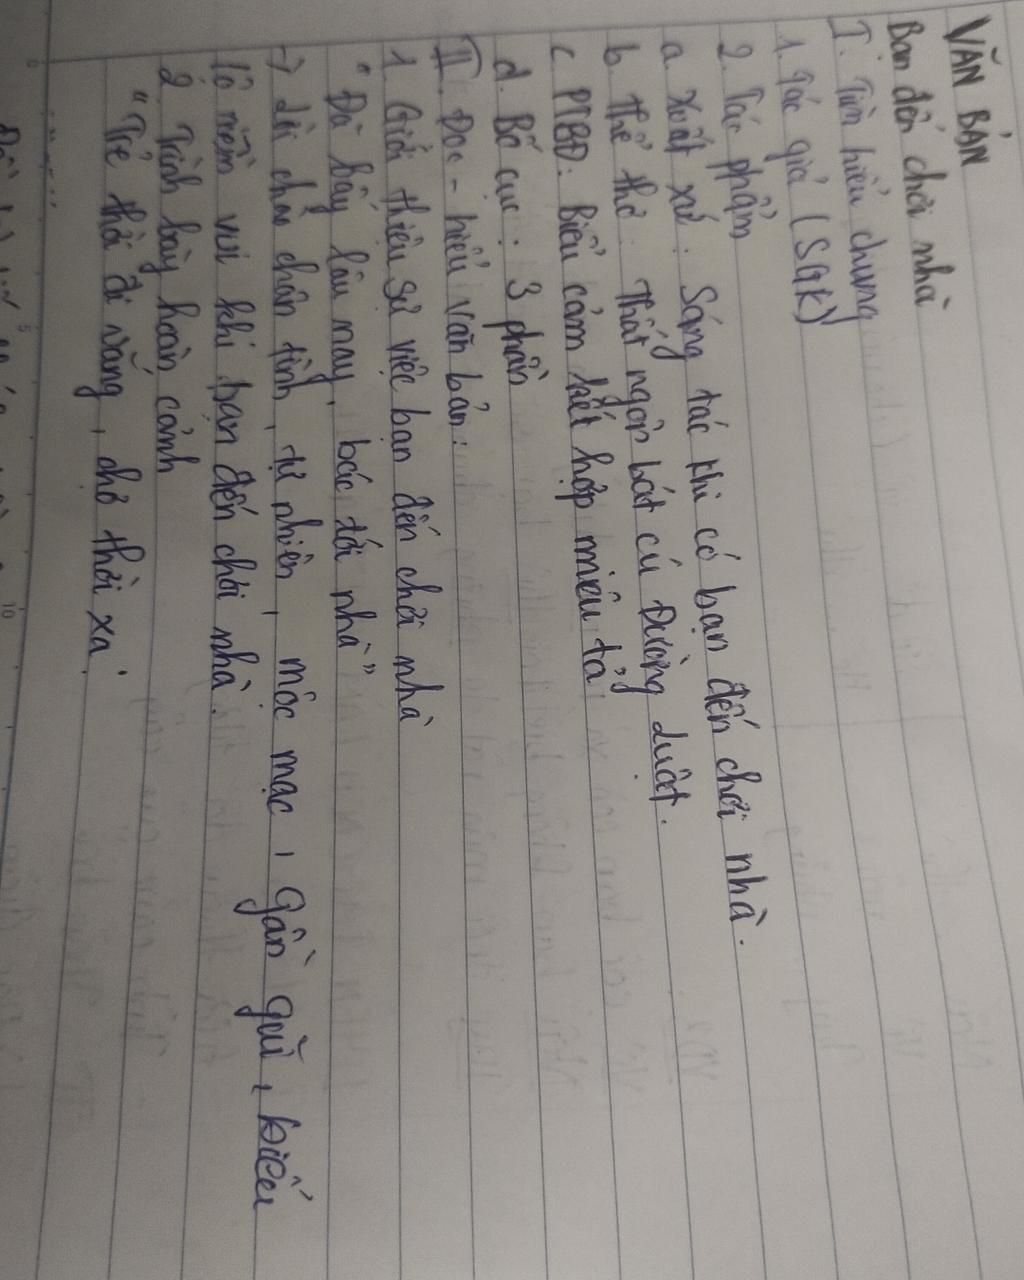 VĂN BẢN
Bạn đến chơi nhà
I. Tìm hiểu chung
1. Tác giả (SGK)
2. Tác phẩm
a. Xuất xứ: Sáng tác khi có bạn đến chơi nhà.
b. Thể thơ: Thất ngôn bát cú Đường luật.
c. PTBĐ: Biểu cảm kết hợp miêu tả
d. Bố cục: 3 phần
II. Đọc - hiểu văn bản:
1. Giới thiệu sự việc bạn đến chơi nhà
"Đã bấy lâu nay, bác tới nhà"
→ lời chào chân tình, tự nhiên, mộc mạc, gần gũi, biểu
lộ niềm vui khi bạn đến chơi nhà.
2. Trình bày hoàn cảnh
"Trẻ thời đi vắng, chợ thời xa.